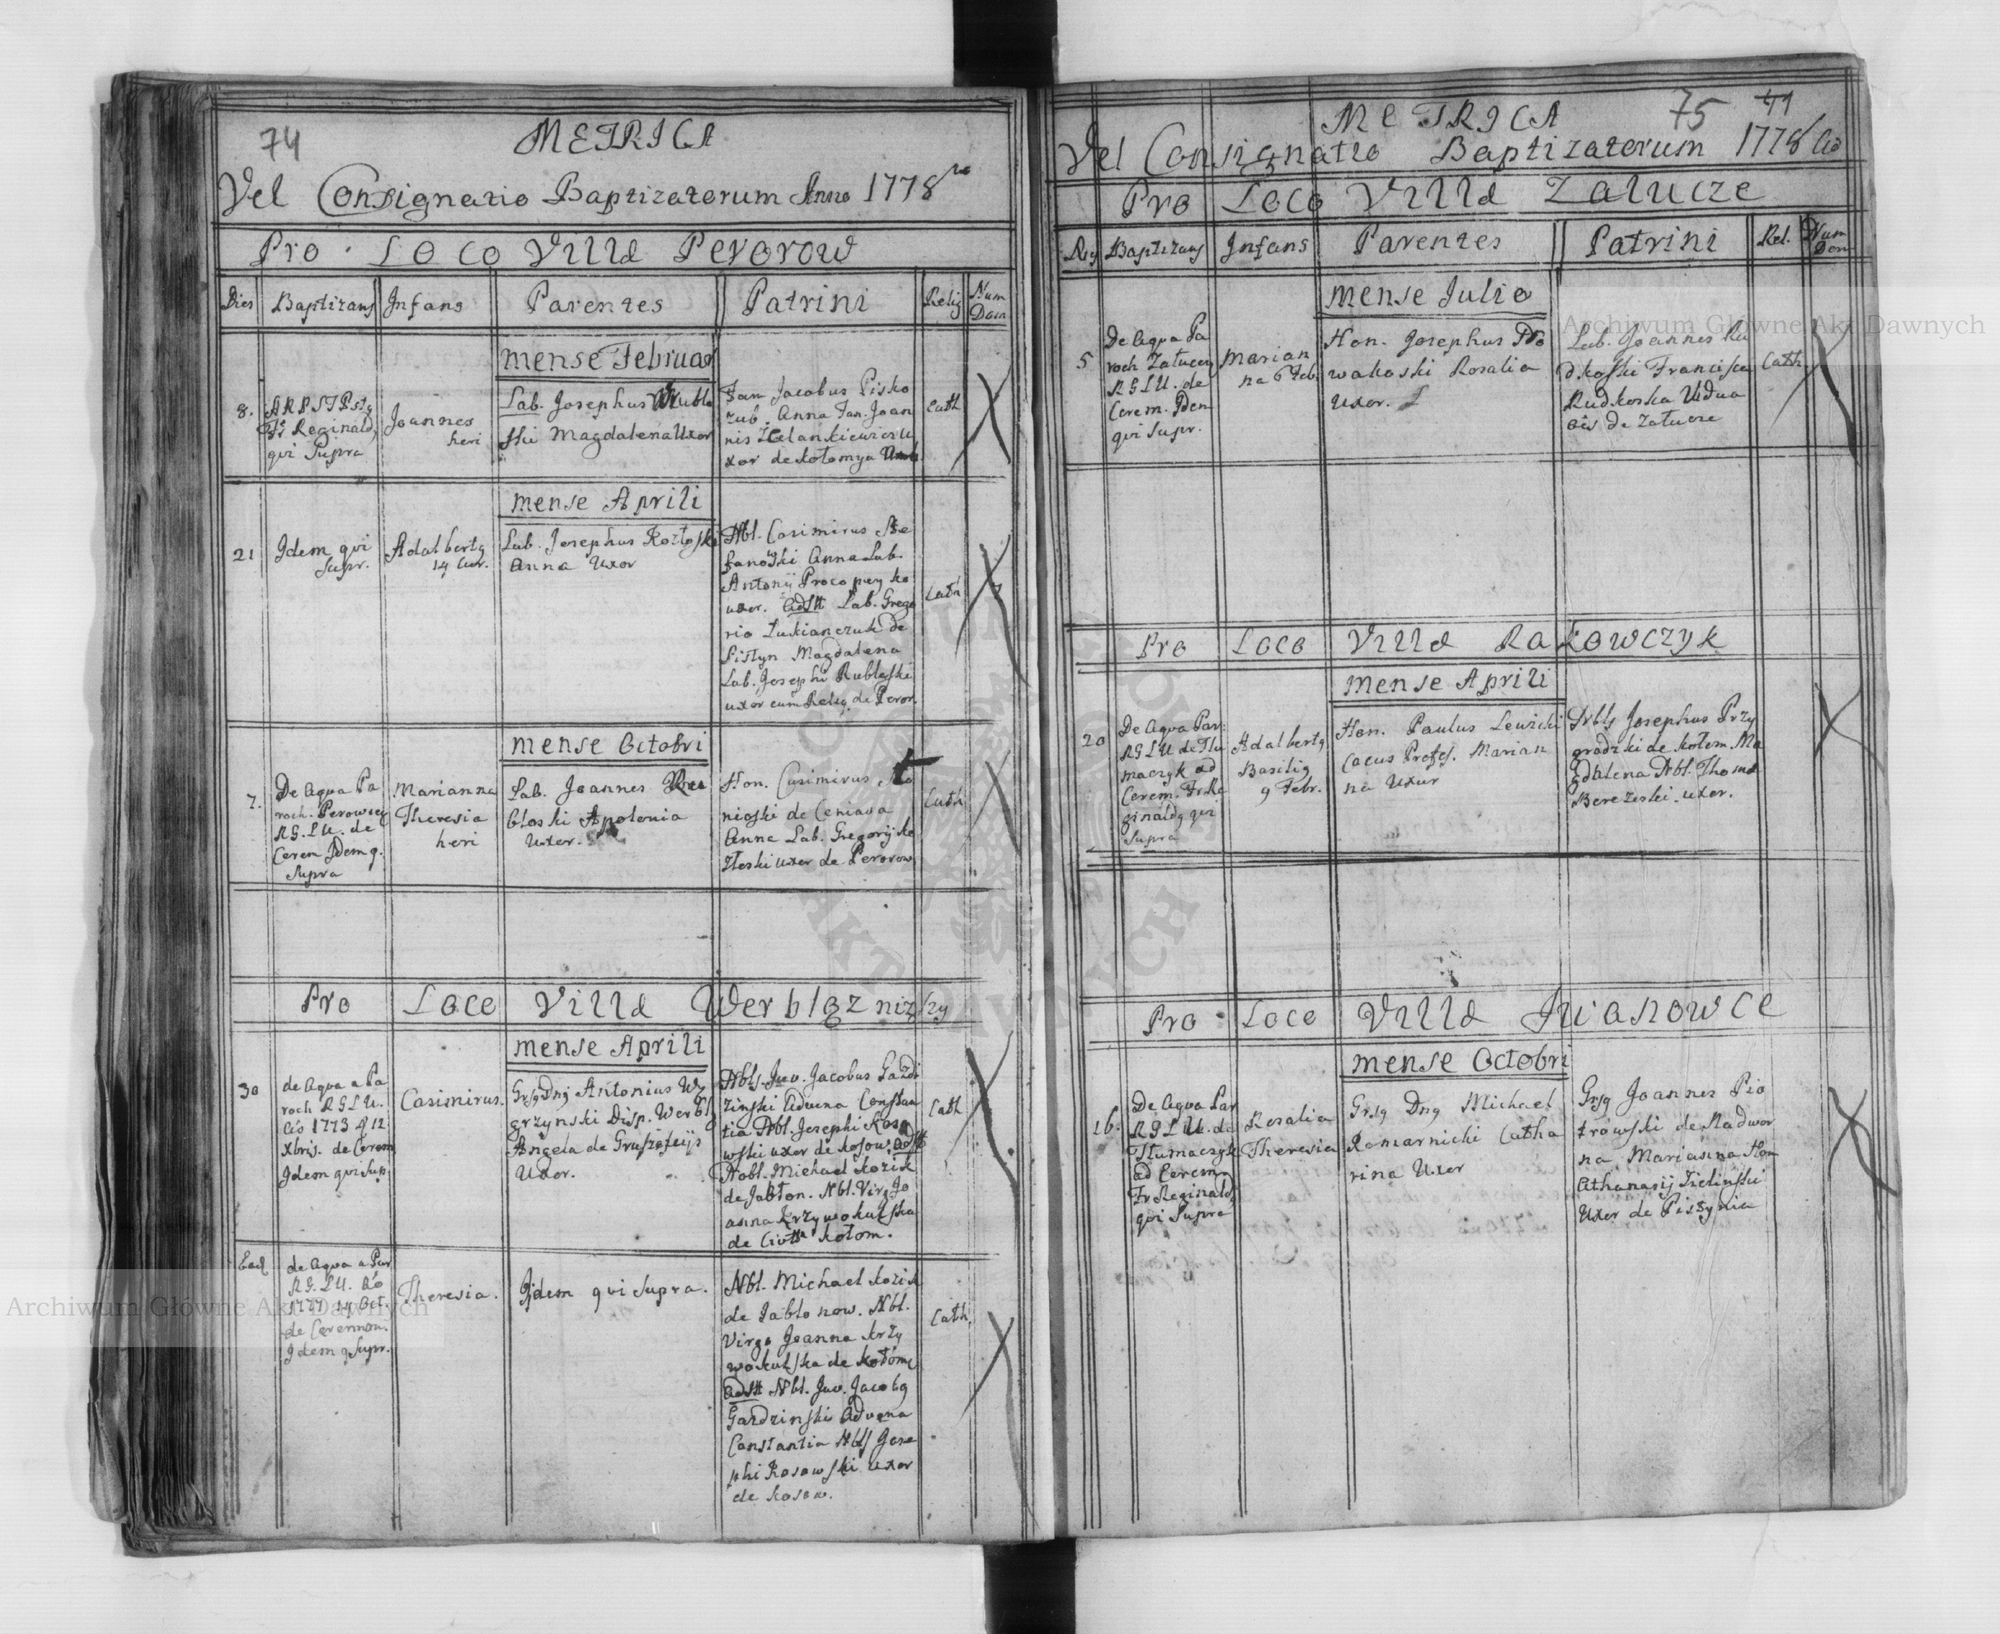 74
METRICA
Vel Consignatio Baptizatorum Anno 1778
Pro Loco Villa Perorow
Dies Baptizans Infans Parentes Patrini Relig Num Dom
mense Februar
8.
Reginald
qui Supra
Joannes
heri
Lab. Josephus Rublo
ski Magdalena Uxor
Fam Jacobus Pisko
zub. Anna Fam. Joan
nis Zelankiewicz U
xor de Kołomya
Cath
mense Aprili
21
Idem qui
Supr.
Adalbertg
14 Cur.
Lab. Josephus Kozłoski
Anna Uxor
Nbl. Casimirus Ste
fanoski Anna Lab.
Antonij Procopuyko
uxor. adstt Lab. Grego
rio Lukianczuk de
Pistyn Magdalena
Lab. Josephi Rubleski
uxor cum Reliq. de Peror.
Cath
mense Octobri
7.
De aqua Pa
roch. Perowiec
R.G.L.U. de
Cerem Idem q.
Supra
Marianna
Theresia
heri
Lab. Joannes
bloski Apolonia
Uxor.
Hon. Casimirus
nioski de Ceniawa
Anna Lab. Gregorij Ko
złoski uxor de Perorow
Cath
Pro Loco Villa Werbiązniżzy
mense Aprili
30
de aqua a Pa
roch R G L U.
Ao 1773 d 12
Xbris. de Cerem
Idem qui Sup.
Casimirus.
Grsg Dng Antonius Wę
grzynski Disp. Werbiz
Angela de Gruszeckijs
Uxor.
Nblg. Juv. Jacobus Gazdi
zinski Advena Constan
tia Nbl. Josephi Koso
wski uxor de Kosow. adstt
Nobl. Michael Kozik
de Jabłon. Nbl. Virg Jo
anna Krzywokulska
de Civtte Kołom.
Cath
Ead
de aqua a Par
R.G.L.U. Ao
1777 14 Oct.
de Ceremon.
Idem q Supr.
Theresia.
Idem qui Supra.
Nbl. Michael Kozik
de Jabłonow. Nbl.
Virgo Joanna Krzy
wokulska de Kołome
adstt Nbl. Juv. Jacobg
Gazdzinski Advena
Constantia Nblg Jose
phi Kosowski Uxor
de Kosow.
Cath.
75 41
METRICA
Vel Consignatio Baptizatorum 1778
Pro Loco Villa Załucze
Dieg Baptizans Infans Parentes Patrini Rel. Num Dom
mense Julio
5
De aqua Pa
roch Załucen
R G L U. de
Cerem. Idem
qui supr.
Marian
na 6 Feb.
Hon. Josephus No
wakoski Rosalia
Uxor.
Lab. Joannes Ru
dkoski Francisca
Rudkoska Vidua
de Załucze
Cath
Pro Loco Villa Rakowczyk
mense Aprili
20
De aqua Par.
R G L U de Tłu
maczyk ad
Cerem. Fr Re
ginaldg qui
Supra
Adalbertg
Basilig
9 Febr.
Hon. Paulus Lewicki
Cacus Profes. Marian
na Uxor
Nblg Josephus Przy
grodzki de Kołom. Ma
gdalena Nbl. Thomæ
Berezeski. uxor.
Pro Loco Villa Iwanowce
mense Octobri
16.
De aqua Par
R G L U. de
Tłumaczyk
ad Cerem.
Fr Reginaldg
qui Supra
Rosalia
Theresia
Grsg Dng Michael
Komarnicki Catha
rina Uxor
Grsg Joannes Pio
trowski de Nadwor
na Marianna Hon
Athanasij Zielinski
Uxor de Piszynia
Archiwum Główne Akt Dawnych
Archiwum Główne Akt Dawnych